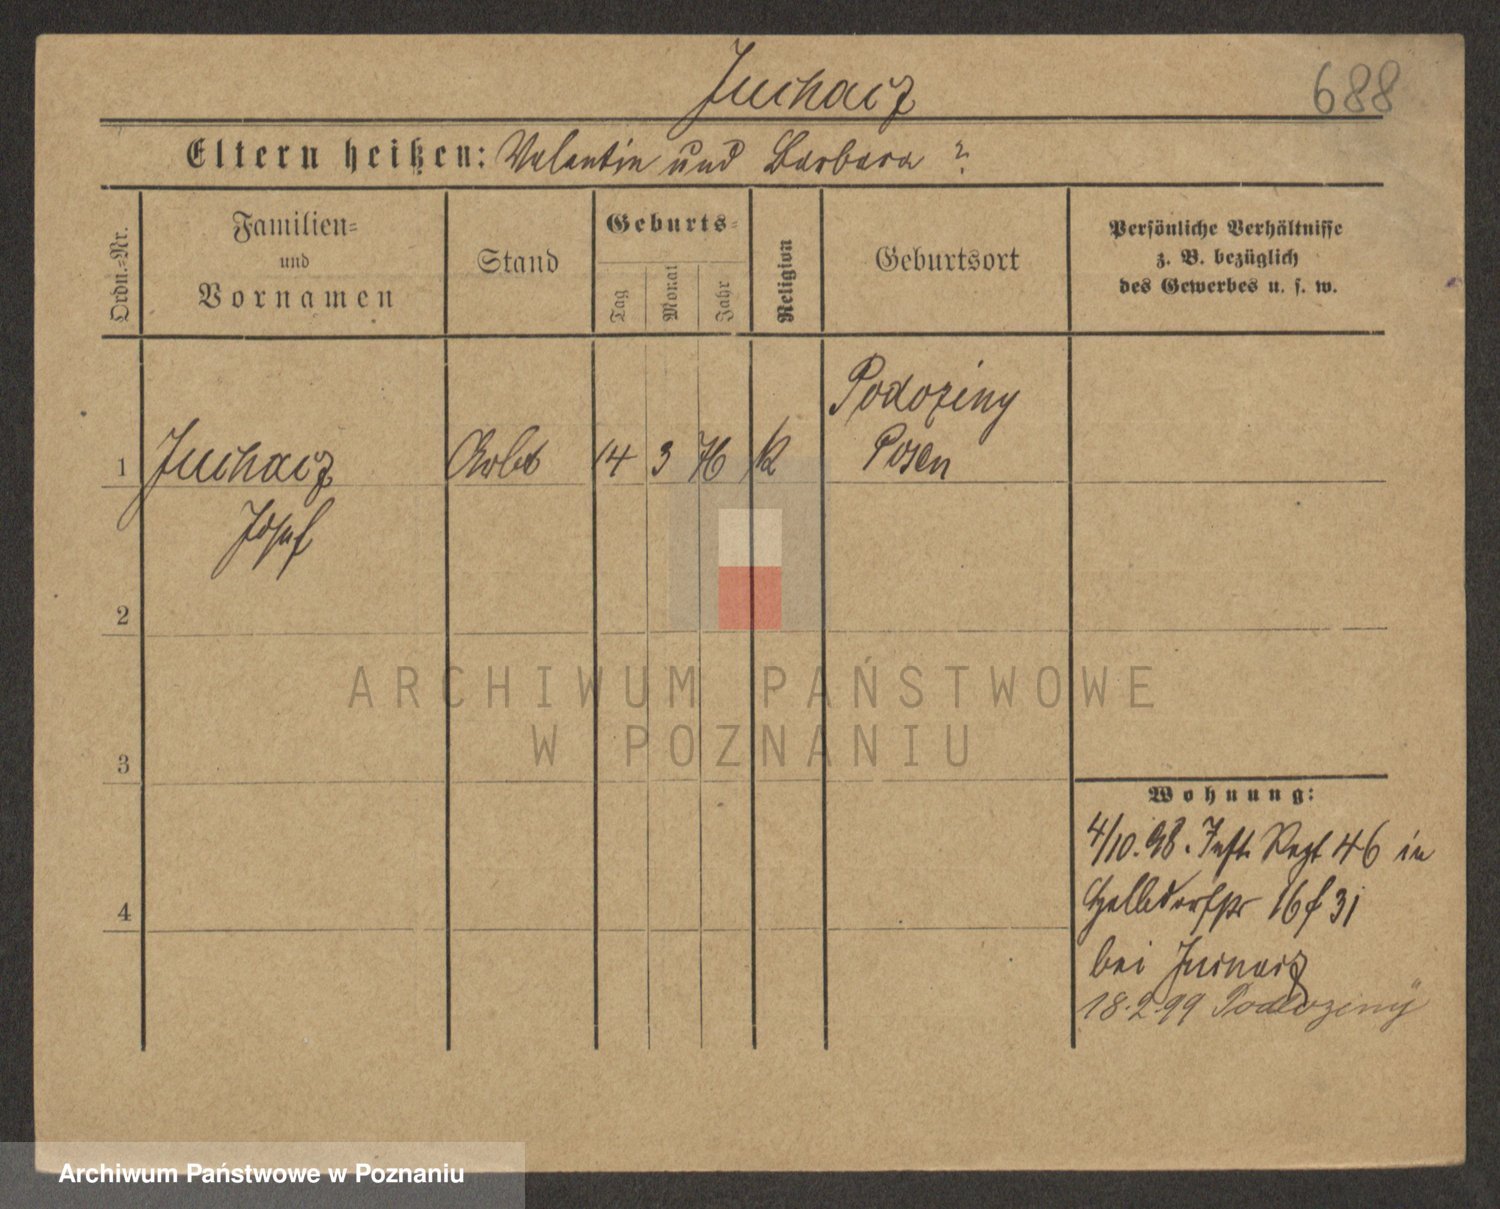 Juchacz
688
Eltern heißen: Valentin und Barbara ?
Ordn.-Nr.
Familien- und Vornamen
Stand
Geburts-
Tag
Monat
Jahr
Religion
Geburtsort
Persönliche Verhältnisse
z. B. bezüglich
des Gewerbes u. s. w.
Podoziny
1 Juchacz Arbt 14 3 76 K Posen
Josef
2
ARCHIWUM PAŃSTWOWE
W POZNANIU
3
Wohnung:
4/10.98. Inft. Regt 46 in
16 31
4
bei
18.2.99 Podoziny
Archiwum Państwowe w Poznaniu